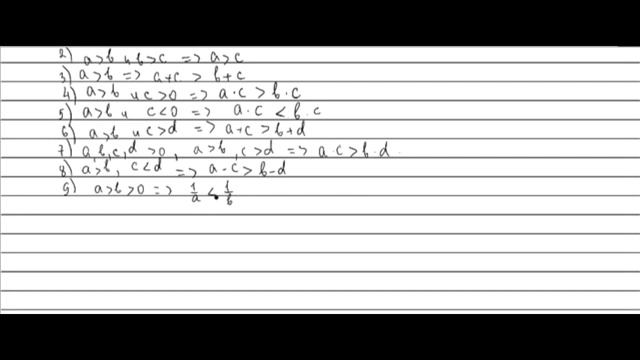 2) a>b и b>c => a>c
3) a>b => a+c > b+c
4) a>b и c>0 => a·c > b·c
5) a>b и c<0 => a·c < b·c
6) a>b и c>d => a+c > b+d
7) a,b,c,d>0, a>b, c>d => a·c > b·d.
8) a>b, c<d => a-c > b-d
9) a>b>0 => 1/a < 1/b